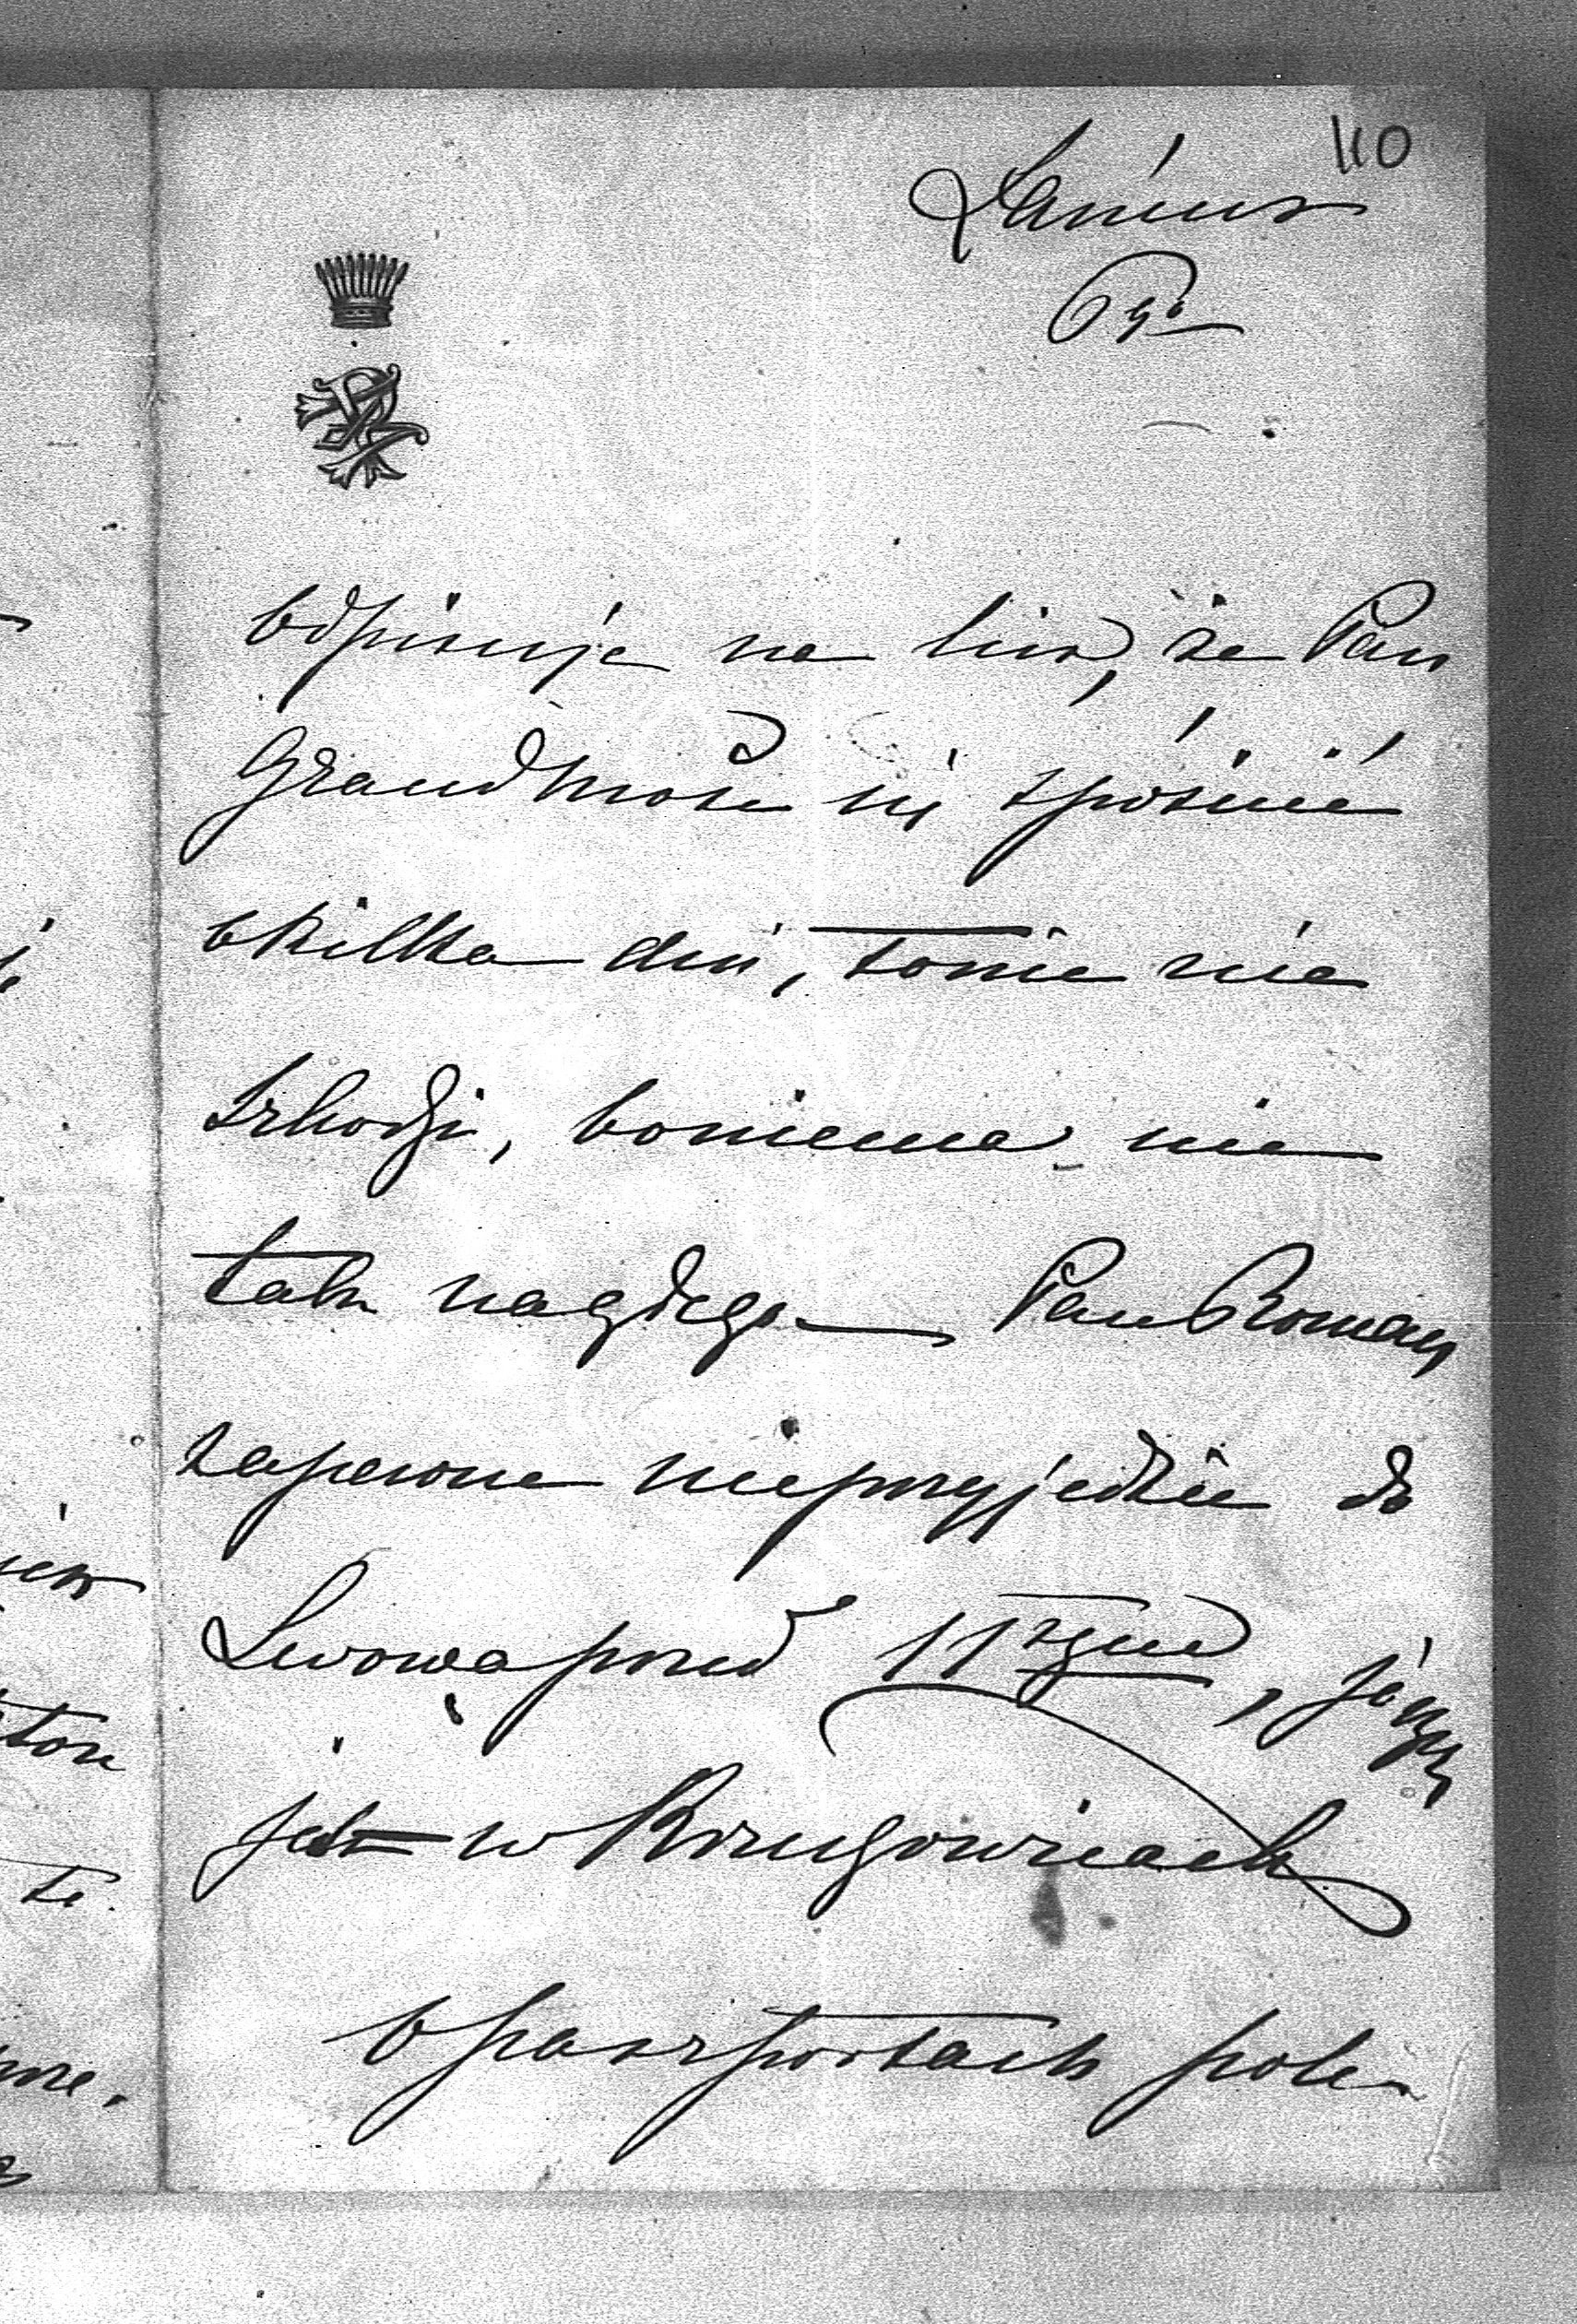 110
Łańcut
6go
Odpisuję na list, że Pan
Grand może się spóźnić
o kilka dni, to nie nie
szkodzi, bo nie ma nic
tak nagłego — Pan Roman
zapewne nie przyjedzie do
Lwowa przed 11tym,
jest w Krzugowicach
O paszportach pole-